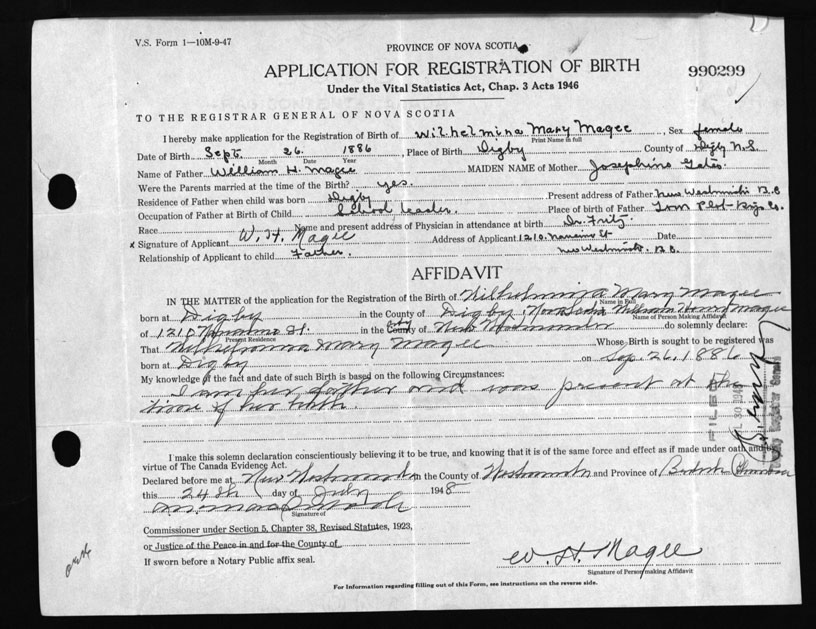 V.S. Form 1—10M-9-47
PROVINCE OF NOVA SCOTIA
APPLICATION FOR REGISTRATION OF BIRTH
990299
Under the Vital Statistics Act, Chap. 3 Acts 1946
TO THE REGISTRAR GENERAL OF NOVA SCOTIA
I hereby make application for the Registration of Birth of Wilhelmina Mary Magee, Sex female
Print Name in full
Date of Birth Sept. 26. 1886, Place of Birth Digby County of Digby N.S.
Month Date Year
Name of Father William H. Magee MAIDEN NAME of Mother Josephine Gates
Were the Parents married at the time of the Birth? yes.
Residence of Father when child was born Digby Present address of Father New Westminster B.C
Occupation of Father at Birth of Child School teacher. Place of birth of Father
Race Name and present address of Physician in attendance at birth Dr. Fritz
x Signature of Applicant W. H. Magee Address of Applicant 1210. Nanaimo St Date
Relationship of Applicant to child Father. New Westminster. B.C.
AFFIDAVIT
IN THE MATTER of the application for the Registration of the Birth of Wilhelmina Mary Magee
Name in Full
born at Digby in the County of Digby, Nova Scotia William Henry Magee
Name of Person Making Affidavit
of 1210 Nanaimo St. in the County of New Westminster do solemnly declare:
Present Residence
That Wilhelmina Mary Magee Whose Birth is sought to be registered was
born at Digby on Sep. 26, 1886
My knowledge of the fact and date of such Birth is based on the following Circumstances:
I am her father and was present at the
time of her birth.
FILED
Deputy Registrar General
I make this solemn declaration conscientiously believing it to be true, and knowing that it is of the same force and effect as if made under oath and by
virtue of The Canada Evidence Act.
Declared before me at New Westminster in the County of Westminster and Province of British Columbia
this 24th day of July 1948
Signature of
Commissioner under Section 5, Chapter 38, Revised Statutes, 1923,
or Justice of the Peace in and for the County of
If sworn before a Notary Public affix seal.
W. H. Magee
Signature of Person making Affidavit
For Information regarding filling out of this Form, see instructions on the reverse side.